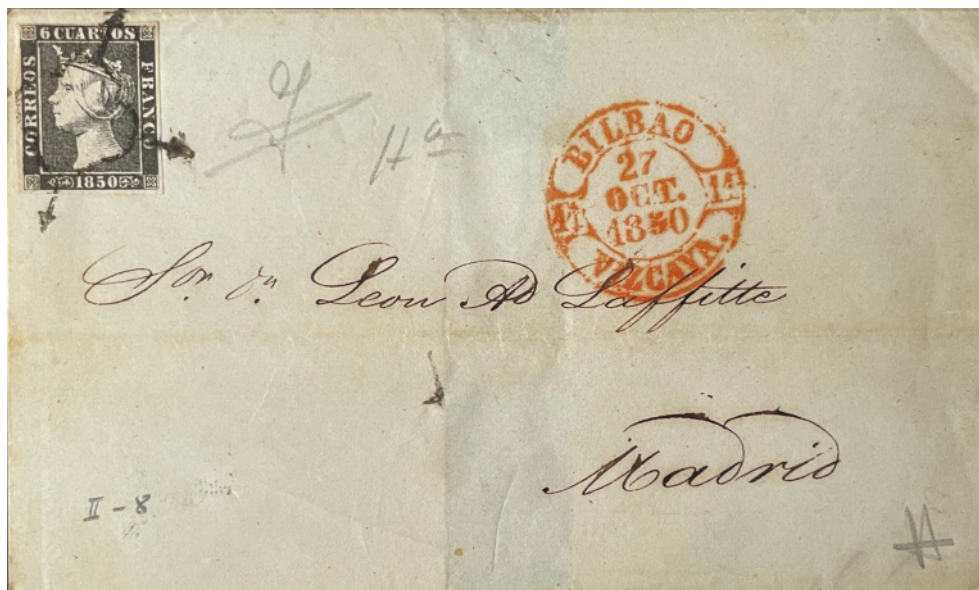 6 CUARTOS
CORREOS
FRANCO
1850
BILBAO
27
OCT.
1850
14 14
VIZCAYA.
Sor. Dn Leon Ad Laffitte
Madrid
II - 8